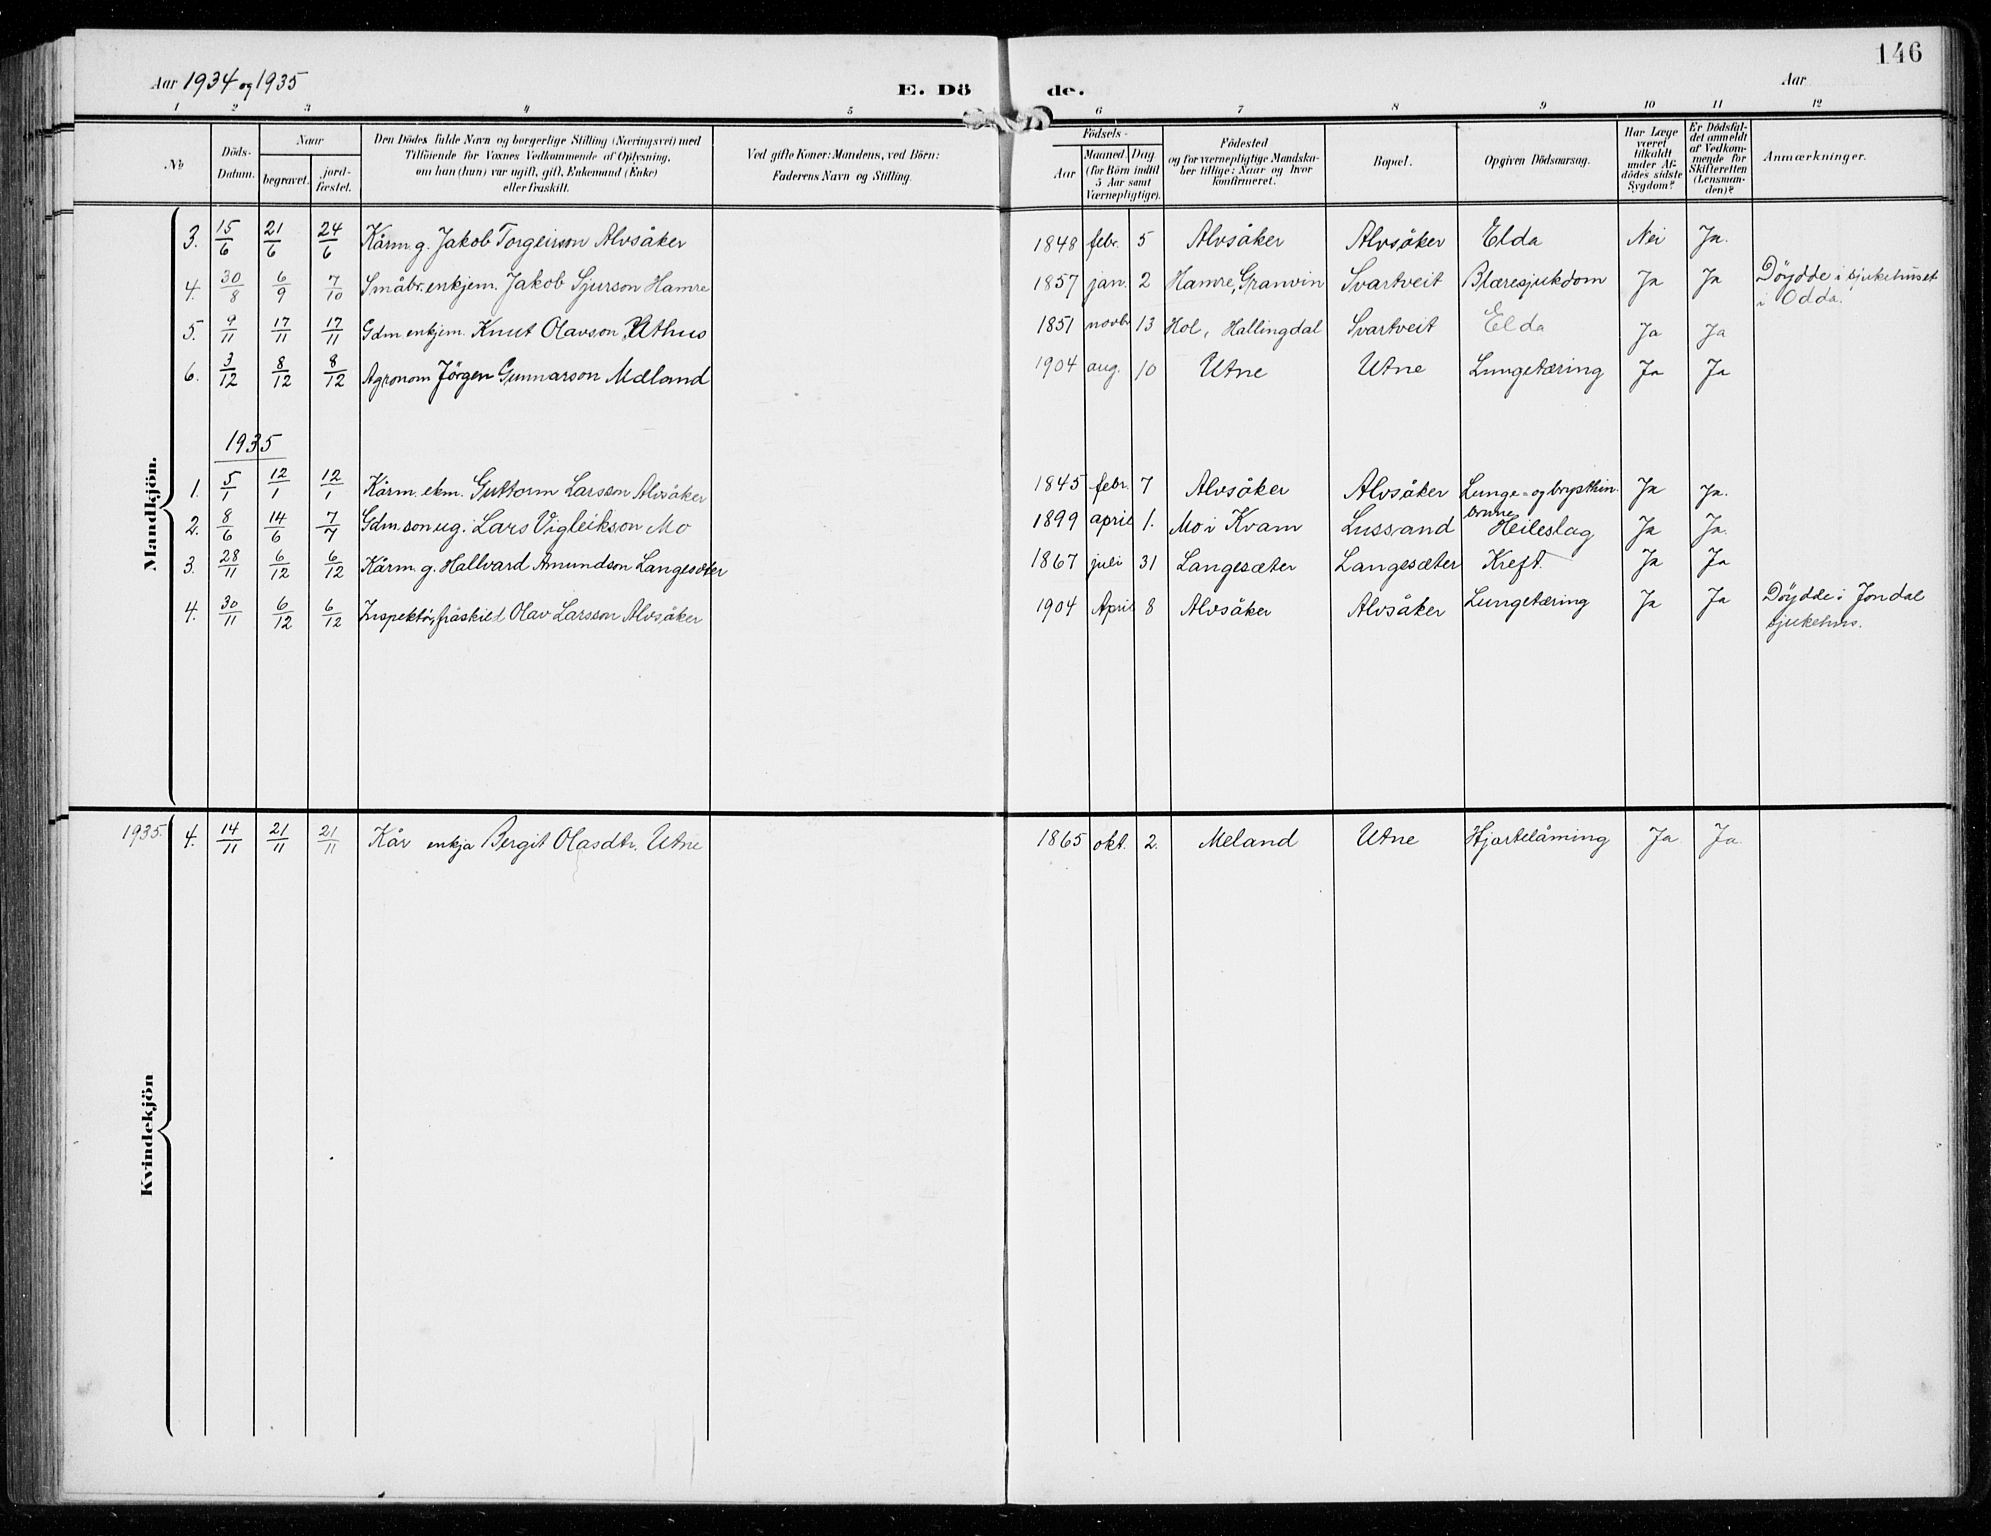 146
Aar 1934 og 1935
E. Dö de.
Aar
1 2 3 4 5 6 7 8 9 10 11 12
No
Döds-Datum.
Naar
begravet.
jord-fæstet.
Den Dödes fulde Navn og borgerlige Stilling (Næringsvei) med
Tilföiende for Voxnes Vedkommende af Oplysning,
om han (hun) var ugift, gift, Enkemand (Enke)
eller fraskilt.
Ved gifte Koner: Mandens, ved Börn:
Faderens Navn og Stilling.
Födsels-
Aar
Maaned Dag
(for Börn indtil
5 Aar samt
Værnepligtige).
Födested
og for værnepligtige Mandska-
ber tillige: Naar og hvor
konfirmeret.
Bopæl.
Opgiven Dödsaarsag.
Har Læge
været
tilkaldt
under Af-
dödes sidste
Sygdom?
Er Dödsfal-
det anmeldt
af Vedkom-
mende for
Skifteretten
(Lensman-
den)?
Anmærkninger.
Mandkjön.
3. 15/6 21/6 24/6 Kårm. g. Jakob Torgeirson Alvsåker 1848 febr. 5 Alvsåker Alvsåker Elda Nei Ja.
4. 30/8 6/9 7/10 Småbr. enkjem. Jakob Sjurson Hamre 1857 jan. 2 Hamre, Granvin Svartveit Blæresjukdom Ja Ja Döydde i sjukehuset
i Odda.
5. 9/11 17/11 17/11 Gdm enkjem. Knut Olavson Uthus 1851 novbr 13 Hol, Hallingdal Svartveit Elda Ja Ja
6. 3/12 8/12 8/12 Agronom Jörgen Gunnarson Mæland 1904 aug. 10 Utne Utne Lungetæring Ja Ja
1935
1. 5/1 12/1 12/1 Kårm. ekm. Guttorm Larsson Alvsåker 1845 febr. 7 Alvsåker Alvsåker Lunge- og brysthin. Ja Ja.
2. 8/6 14/6 7/7 Gdm. son ug. Lars Vigleikson Mo 1899 april 1. Mo i Kvam Lussand Heileslag Ja Ja.
3. 28/11 6/12 6/12 Kårm. g. Hallvard Amundson Langesæter 1867 juli 31 Langesæter Langesæter Kreft. Ja Ja
4. 30/11 6/12 6/12 Inspektör, fråskild Olav Larsson Alvsåker 1904 April 8 Alvsåker Alvsåker Lungetæring Ja Ja Döydde i Jondal
sjukehus.
Kvindekjön
1935. 4. 14/11 21/11 21/11 Kår enkja Bergit Olasdtr. Utne 1865 okt. 2. Meland Utne Hjartelåming Ja. Ja.